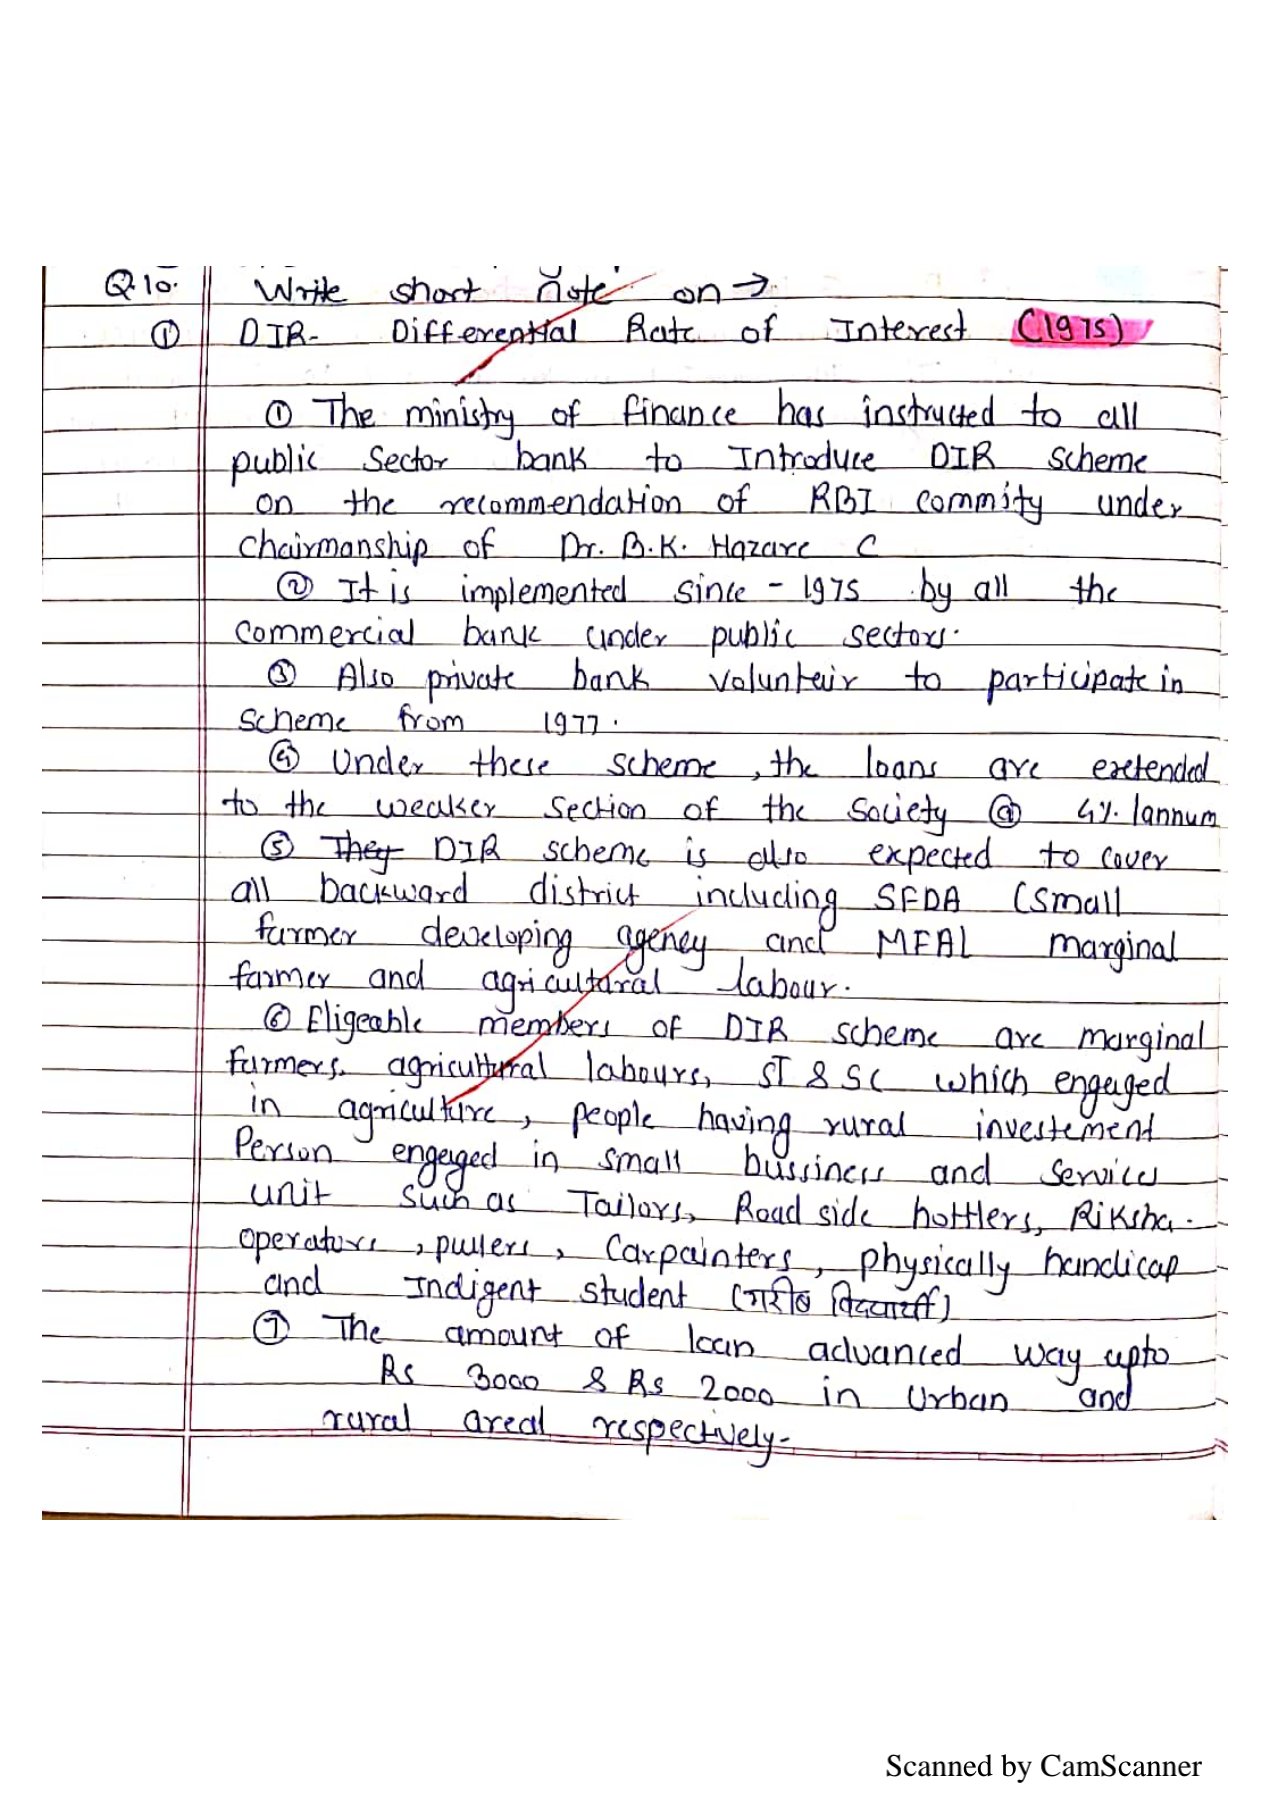 Q.10. Write short note on →
① DIR- Differential Rate of Interest (1975)
① The ministry of finance has instructed to all
public Sector bank to Introduce DIR scheme
on the recommendation of RBI commity under
chairmanship of Dr. B.K. Hazare C
② It is implemented since - 1975 by all the
commercial bank under public sectors.
③ Also private bank volunteir to participate in
scheme from 1977.
④ Under these scheme, the loans are exetended
to the weaker section of the society @ 4% /annum
⑤ They DIR scheme is also expected to cover
all backward district including SFDA (small
farmer developing agency and MFAL marginal
farmer and agricultural labour.
⑥ Eligeable members of DIR scheme are marginal
farmers, agricultural labours, ST & SC which engeged
in agriculture, people having rural investement
Person engeged in small bussiness and service
unit such as Tailors, Road side hottlers, Riksha
operators, pullers, Carpainters, physically handicap
and Indigent student (गरीब विदयार्थी)
⑦ The amount of loan advanced way upto
Rs 3000 & Rs 2000 in Urban and
rural areal respectively-
Scanned by CamScanner